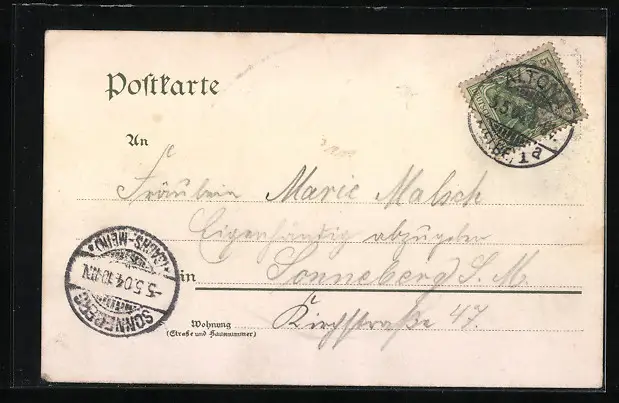 Postkarte
ALTONA
5.5.04
(ELBE)
An
Fräulein Marie Malsch
Eigenhändig abzugeben
in Sonneberg S. M.
Wohnung Kirchstraße 47.
(Straße und Hausnummer)
SONNEBERG
5.5.04
(SACHS-MEIN)